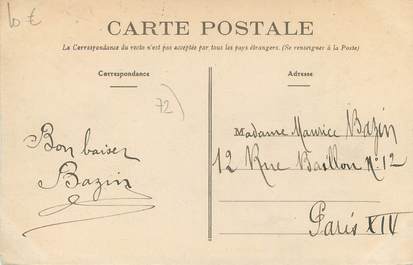 10 €
CARTE POSTALE
La Correspondance du recto n'est pas acceptée par tous les pays étrangers. (Se renseigner à la Poste)
Correspondance
Adresse
72)
Bon baiser
Bazin
Madame Maurice Bazin
12 Rue Baillon N° 12
Paris XIV